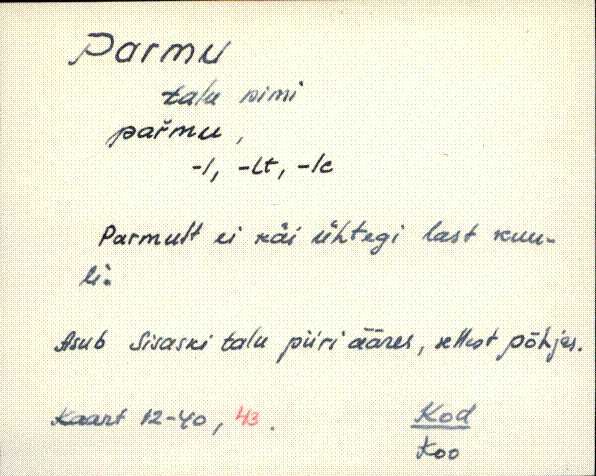 Parmu
talu nimi
pařmu,
-l, -lt, -le
Parmult ei käi ühtegi last kuu-
li.
Asub Sisaski talu piiri ääres, sellest põhjas.
Kaart 12-40, 43.
Kod
Koo